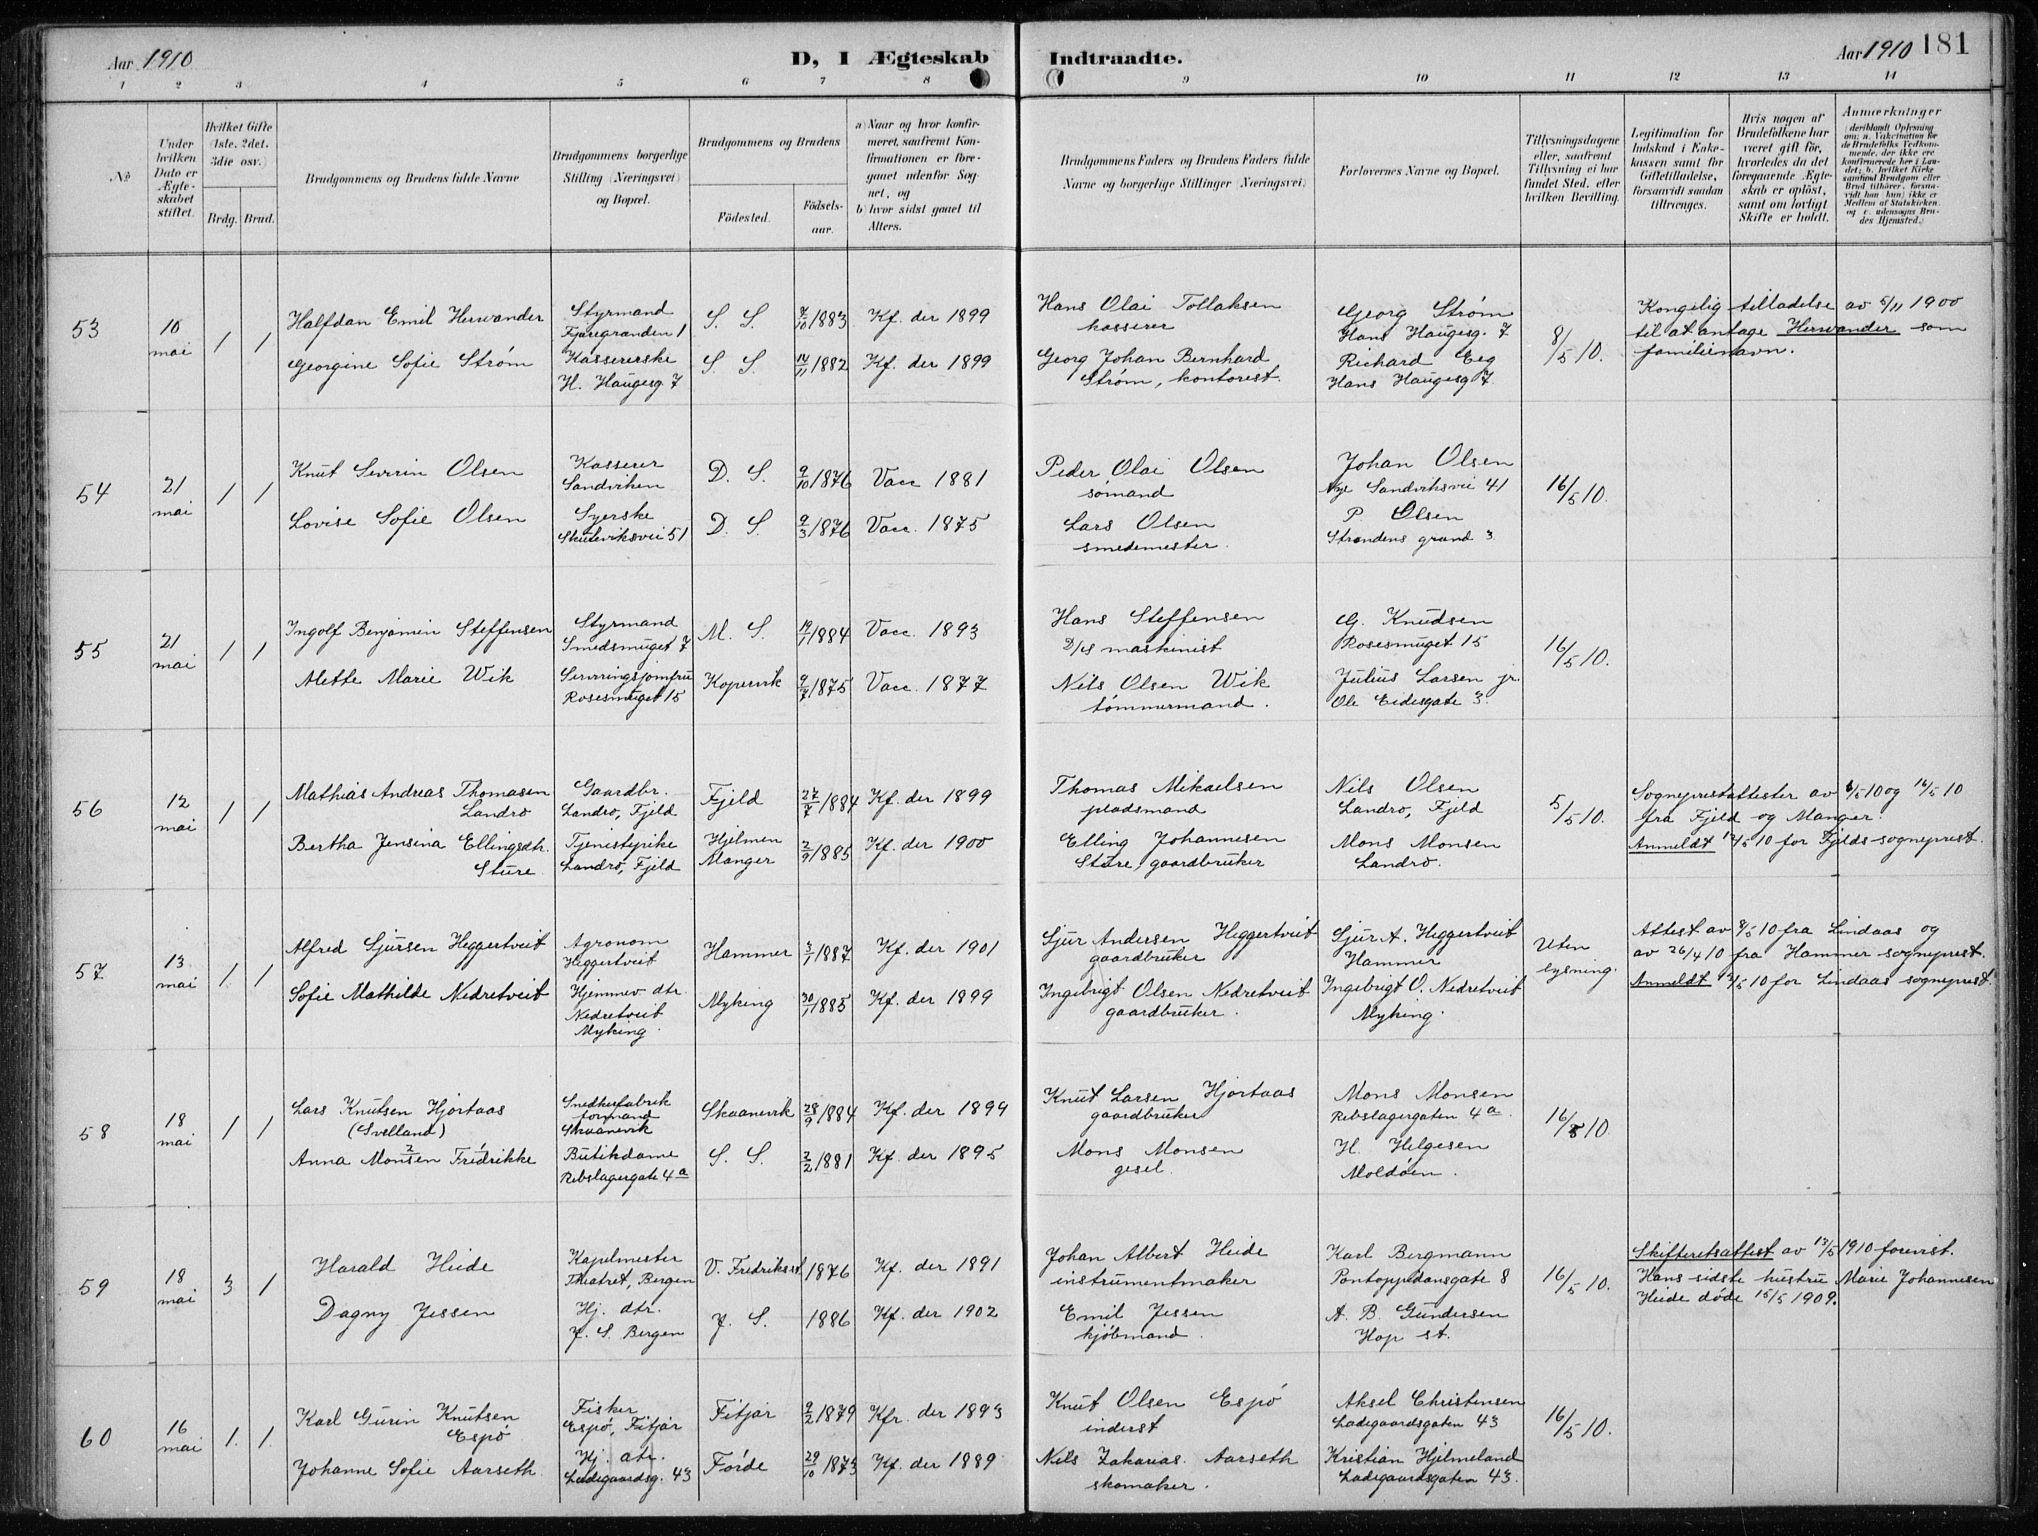 Aar 1910
D, I Ægteskab Indtraadte.
Aar 1910 181
1 2 3 4 5 6 7 8 9 10 11 12 13 14
№
Under hvilken Dato er Ægteskabet stiftet.
Hvilket Gifte (1ste. 2det. 3die osv.)
Brdg. Brud.
Brudgommens og Brudens fulde Navne
Brudgommens borgerlige Stilling (Næringsvei) og Bopæl.
Brudgommens og Brudens
Födested.
Födsels-aar.
a) Naar og hvor konfirmeret, saafremt Konfirmationen er foregaaet udenfor Sognet, og
b) hvor sidst gaaet til Alters.
Brudgommens Faders og Brudens Faders fulde Navne og borgerlige Stillinger (Næringsvei)
Forlovernes Navne og Bopæl.
Tillysningsdagene eller, saafremt Tillysning ei har fundet Sted, efter hvilken Bevilling.
Legitimation for Indskud i Enkekassen samt for Giftetilladelse, forsaavidt saadan tiltrænges.
Hvis nogen af Brudefolkene har været gift för, hvorledes da det foregaaende Ægteskab er oplöst, samt om lovligt Skifte er holdt.
Anmærkninger
53
10 mai
1 1
Halfdan Emil Herwander
Styrmand
Fjæregranden 1
S. S. 7/10 1883 Kf. der 1899
Georgine Sofie Strøm
Kassererske
H. Haugesg. 7
S. S. 14/11 1882 Kf. der 1899
Hans Olai Tollaksen
kasserer
Georg Johan Bernhard
Strøm, kontorist.
Georg Strøm
Hans Haugesg. 7
Richard Eeg
Hans Haugesg 7.
8/5 10.
Kongelig tilladelse av 5/11 1900
til at antage Herwander som
familienavn.
54
21 mai
1 1
Knut Severin Olsen
Kasserer
Sandviken
D. S. 9/10 1876 Vacc 1881
Lovise Sofie Olsen
Syerske
Skuteviksvei 51
D. S. 9/3 1876 Vacc. 1875
Peder Olai Olsen
sømand
Lars Olsen
smedemester.
Johan Olsen
Nye Sandviksvei 41
P. Olsen
Strandens grand 3
16/5 10.
55
21 mai
1 1
Ingolf Benjamin Steffensen
Styrmand
Smedsmuget 7
M. S. 19/1 1884 Vacc. 1893
Mette Marie Wik
Serveringsjomfru
Rosesmuget 15
Kopervik 9/7 1875 Vacc. 1877
Hans Steffensen
D/es maskinist
Nils Olsen Wik
tømmermand.
G. Knudsen
Rosesmuget 15
Julius Larsen jr.
Ole Eidesgate 3.
16/5 10.
56
12 mai
1 1
Mathias Andreas Thomasen
Landro
Gaardbr.
Landro, Fjeld
Fjeld 27/7 1884 Kf. der 1899
Bertha Jensina Ellingsdtr.
Sture
Tjenistepike
Landro, Fjeld
Hjelmen
Manger
2/9 1885 Kf. der 1900
Thomas Mikaelsen
pladsmand
Elling Johannesen
Sture, gaardbruker
Nils Olsen
Landro, Fjeld
Mons Monsen
Landro.
5/5 10.
Sogneprestattester av 6/5 10 og 12/5 10
fra Fjeld og Manger.
Anmeldt 12/5 10 for Fjelds sogneprest.
57
13 mai
1 1
Alfred Sjursen Heggertveit
Agronom
Heggertveit
Hammer 3/1 1887 Kf. der 1901
Sofie Mathilde Nedretveit
Hjemmev. dtr.
Nedretveit
Myking.
Myking 30/1 1885 Kf. der 1899
Sjur Andersen Heggertveit
gaardbruker
Ingebrigt Olsen Nedretveit
gaardbruker.
Sjur A. Heggertveit
Hammer
Ingebrigt O. Nedretveit
Myking.
Uten
lysning.
Attest av 8/5 10 fra Lindaas og
av 26/4 10 fra Hammer sogneprest.
Anmeldt 13/5 10 for Lindaas sogneprest.
58
18 mai
1 1
Lars Knutsen Hjortaas
(Svelland)
Snedkerfabrik
formand
Skaanevik
Skaanevik 28/9 1884 Kf. der 1899
Anna Monsen Fredrikke
Butikdame
Rebslagergate 4a
S. S. 2/2 1881 Kf. der 1895
Knut Larsen Hjortaas
gaardbruker
Mons Monsen
gesel.
Mons Monsen
Rebslagergaten 4a.
H. Helgesen
Moldöen.
16/5 10
59
18 mai
3 1
Harald Heide
Kapelmester
Theatret, Bergen
V. Fredrikst 1876 Kf. der 1891
Dagny Jessen
Hj. dtr.
J. S. Bergen
J. S. 1886 Kf. der 1902
Johan Albert Heide
instrumentmaker
Emil Jessen
kjøbmand.
Karl Bergmann
Pontoppidansgate 8
A. B. Gundersen
Hop st.
16/5 10.
Skifteretsattest av 13/5 1910 forevist.
Hans sidste hustru Marie Johannesen
Heide døde 15/5 1909.
60
16 mai
1. 1.
Karl Gurin Knutsen
Espø
Fisker
Espø, Fitjar
Fitjar 9/2 1879 Kfr. der 1893
Johanne Sofie Aarseth
Hj. dtr.
Ladegaardsg. 43
Førde 29/10 1873 Kf. der 1889
Knut Olsen Espø
inderst
Nils Zakarias. Aarseth
skomaker.
Aksel Christensen
Ladegaardsgaten 43
Kristian Hjelmeland
Ladegaardsgaten 43.
16/5 10.